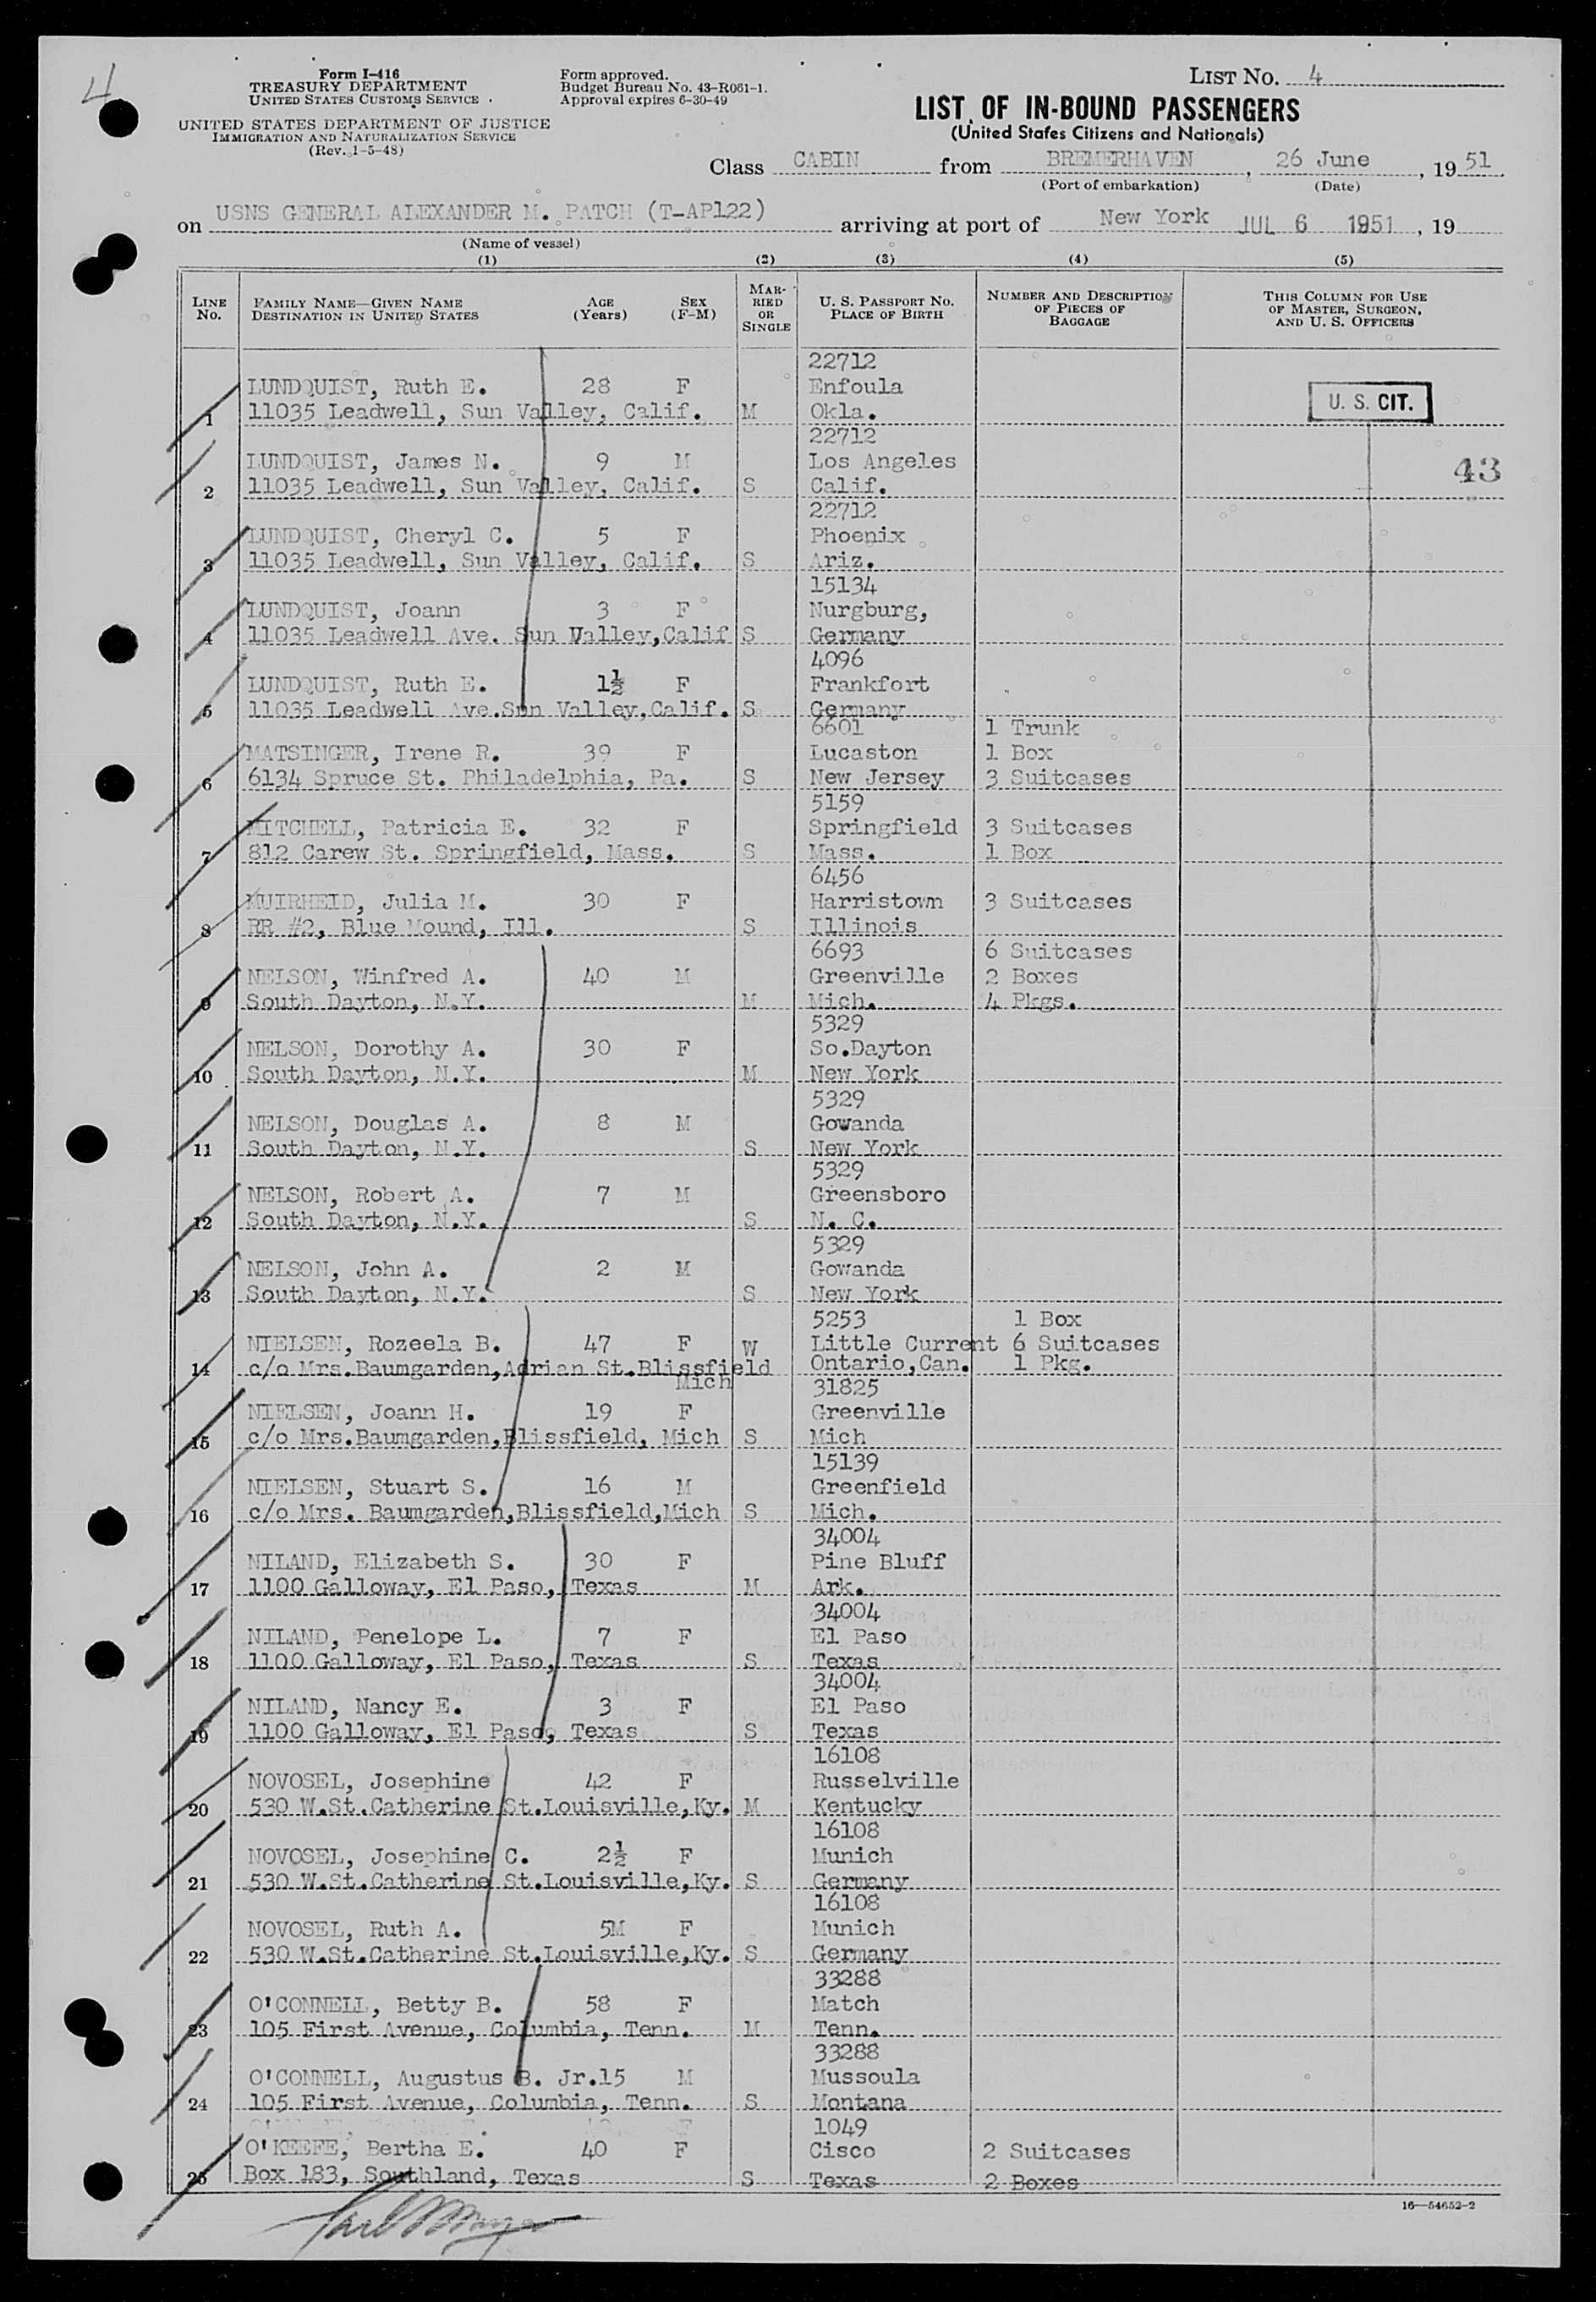 4
Form I-416
TREASURY DEPARTMENT
UNITED STATES CUSTOMS SERVICE
UNITED STATES DEPARTMENT OF JUSTICE
IMMIGRATION AND NATURALIZATION SERVICE
(Rev. 1-5-48)
Form approved.
Budget Bureau No. 43-R061-1.
Approval expires 6-30-49
LIST No. 4
LIST OF IN-BOUND PASSENGERS
(United States Citizens and Nationals)
Class CABIN from BREMERHAVEN, 26 June, 19 51
(Port of embarkation) (Date)
on USNS GENERAL ALEXANDER M. PATCH (T-AP122) arriving at port of New York JUL 6 1951, 19
(Name of vessel)
(1) (2) (3) (4) (5)
LINE No. FAMILY NAME—GIVEN NAME DESTINATION IN UNITED STATES AGE (Years) SEX (F-M) MARRIED OR SINGLE U. S. PASSPORT No. PLACE OF BIRTH NUMBER AND DESCRIPTION OF PIECES OF BAGGAGE THIS COLUMN FOR USE OF MASTER, SURGEON, AND U. S. OFFICERS
22712
LUNDQUIST, Ruth E. 28 F Enfoula
1 11035 Leadwell, Sun Valley, Calif. M Okla.
U. S. CIT.
22712
LUNDQUIST, James N. 9 M Los Angeles
43
2 11035 Leadwell, Sun Valley, Calif. S Calif.
22712
LUNDQUIST, Cheryl C. 5 F Phoenix
3 11035 Leadwell, Sun Valley, Calif. S Ariz.
15134
LUNDQUIST, Joann 3 F Nurgburg,
4 11035 Leadwell Ave. Sun Valley,Calif S Germany
4096
LUNDQUIST, Ruth E. 1½ F Frankfort
5 11035 Leadwell Ave.Sun Valley,Calif. S Germany
6601 1 Trunk
MATSINGER, Irene R. 39 F Lucaston 1 Box
6 6134 Spruce St. Philadelphia, Pa. S New Jersey 3 Suitcases
5159
MITCHELL, Patricia E. 32 F Springfield 3 Suitcases
7 812 Carew St. Springfield, Mass. S Mass. 1 Box
6456
MUIRHEID, Julia M. 30 F Harristown 3 Suitcases
8 RR #2, Blue Mound, Ill. S Illinois
6693 6 Suitcases
NELSON, Winfred A. 40 M Greenville 2 Boxes
9 South Dayton, N.Y. M Mich. 4 Pkgs.
5329
NELSON, Dorothy A. 30 F So.Dayton
10 South Dayton, N.Y. M New York
5329
NELSON, Douglas A. 8 M Gowanda
11 South Dayton, N.Y. S New York
5329
NELSON, Robert A. 7 M Greensboro
12 South Dayton, N.Y. S N. C.
5329
NELSON, John A. 2 M Gowanda
13 South Dayton, N.Y. S New York
5253 1 Box
NIELSEN, Rozeela B. 47 F W Little Current 6 Suitcases
14 c/o Mrs.Baumgarden,Adrian St.Blissfield Ontario,Can. 1 Pkg.
Mich
31825
NIELSEN, Joann H. 19 F Greenville
15 c/o Mrs.Baumgarden,Blissfield, Mich S Mich
15139
NIELSEN, Stuart S. 16 M Greenfield
16 c/o Mrs. Baumgarden,Blissfield,Mich S Mich.
34004
NILAND, Elizabeth S. 30 F Pine Bluff
17 1100 Galloway, El Paso, Texas M Ark.
34004
NILAND, Penelope L. 7 F El Paso
18 1100 Galloway, El Paso, Texas S Texas
34004
NILAND, Nancy E. 3 F El Paso
19 1100 Galloway, El Paso, Texas S Texas
16108
NOVOSEL, Josephine 42 F Russelville
20 530 W.St.Catherine St.Louisville,Ky. M Kentucky
16108
NOVOSEL, Josephine C. 2½ F Munich
21 530 W.St.Catherine St.Louisville,Ky. S Germany
16108
NOVOSEL, Ruth A. 5M F Munich
22 530 W.St.Catherine St.Louisville,Ky. S Germany
33288
O'CONNELL, Betty B. 58 F Match
23 105 First Avenue, Columbia, Tenn. M Tenn.
33288
O'CONNELL, Augustus B. Jr.15 M Mussoula
24 105 First Avenue, Columbia, Tenn. S Montana
1049
O'KEEFE, Bertha E. 40 F Cisco 2 Suitcases
25 Box 183, Southland, Texas S Texas 2 Boxes
16—54652-2